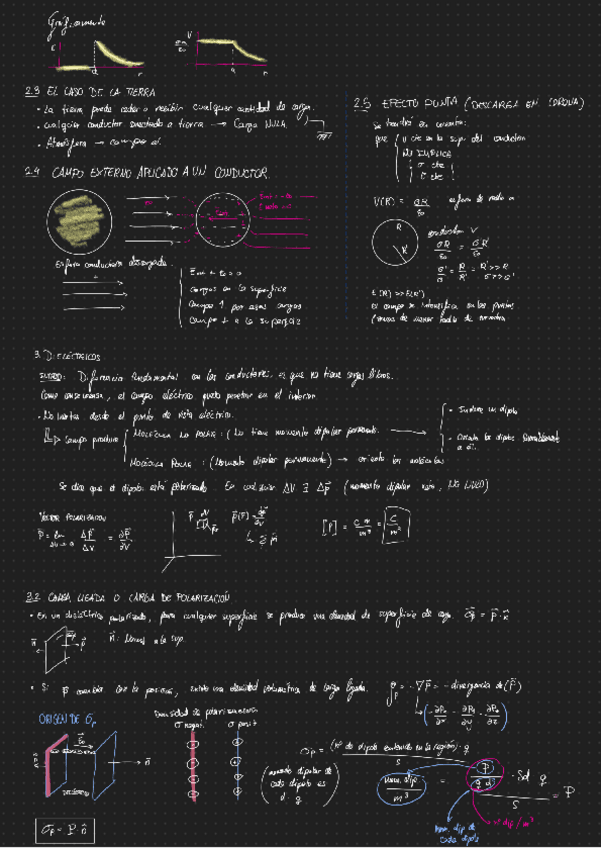 Gráficamente
2.3 EL CASO DE LA TIERRA
• La tierra puede ceder o recibir cualquier cantidad de carga.
• Cualquier conductor conectado a tierra → Carga NULA.
• Atmósfera →
2.4 CAMPO EXTERNO APLICADO A UN CONDUCTOR.
Esfera conductora descargada.
cargas en la superficie
Campo ⊥ a la superficie
2.5 EFECTO PUNTA (DESCARGA EN CORONA)
que V cte en la sup. del conductor
NO IMPLICA
σ cte
V(R) = σR/ε₀ esfera de radio R
σR/ε₀ = σ'R'/ε₀
E(R) >> E(R')
El campo se intensifica en las puntas
(zonas de menor radio de curvatura
3. DIELÉCTRICOS
Diferencia fundamental con los conductores, es que no tiene cargas libres.
Como consecuencia, el campo eléctrico puede penetrar en el interior
• No inertes desde el punto de vista eléctrico.
Campo produce
MOLÉCULA NO POLAR: (No tiene momento dipolar permanente. →
• Induce un dipolo
• Orienta los dipolos
MOLÉCULA POLAR: (Momento dipolar permanente) → orienta las moléculas
Se dice que el dipolo está polarizado En cualquier ΔV ∃ Δp⃗ (momento dipolar neto, NO NULO)
VECTOR POLARIZACIÓN
P⃗ = lim ΔV→0 Δp⃗/ΔV = ∂p⃗/∂V
[P] = C m/m³ = C/m²
3.2 CARGA LIGADA O CARGA DE POLARIZACIÓN
• En un dieléctrico polarizado, para cualquier superficie se produce una densidad de superficie de carga σp = P⃗ · n⃗
n⃗: Normal a la sup.
• Si P⃗ cambia con la posición, existe una densidad volumétrica de carga ligada. ρp = -∇P⃗ = - divergencia de (P⃗)
(-∂Px/∂x - ∂Py/∂y - ∂Pz/∂z)
ORIGEN DE σp
Densidad de polarización
σ negat. σ posit.
σp = (nº de dipolos contenido en la región) · q / S
(momento dipolar de cada dipolo es d · q)
num. dip/m³ = P/(q d) · Sd q / S = P
nº dip/m³
mom. dip de cada dipolo
σp = P⃗ · n⃗